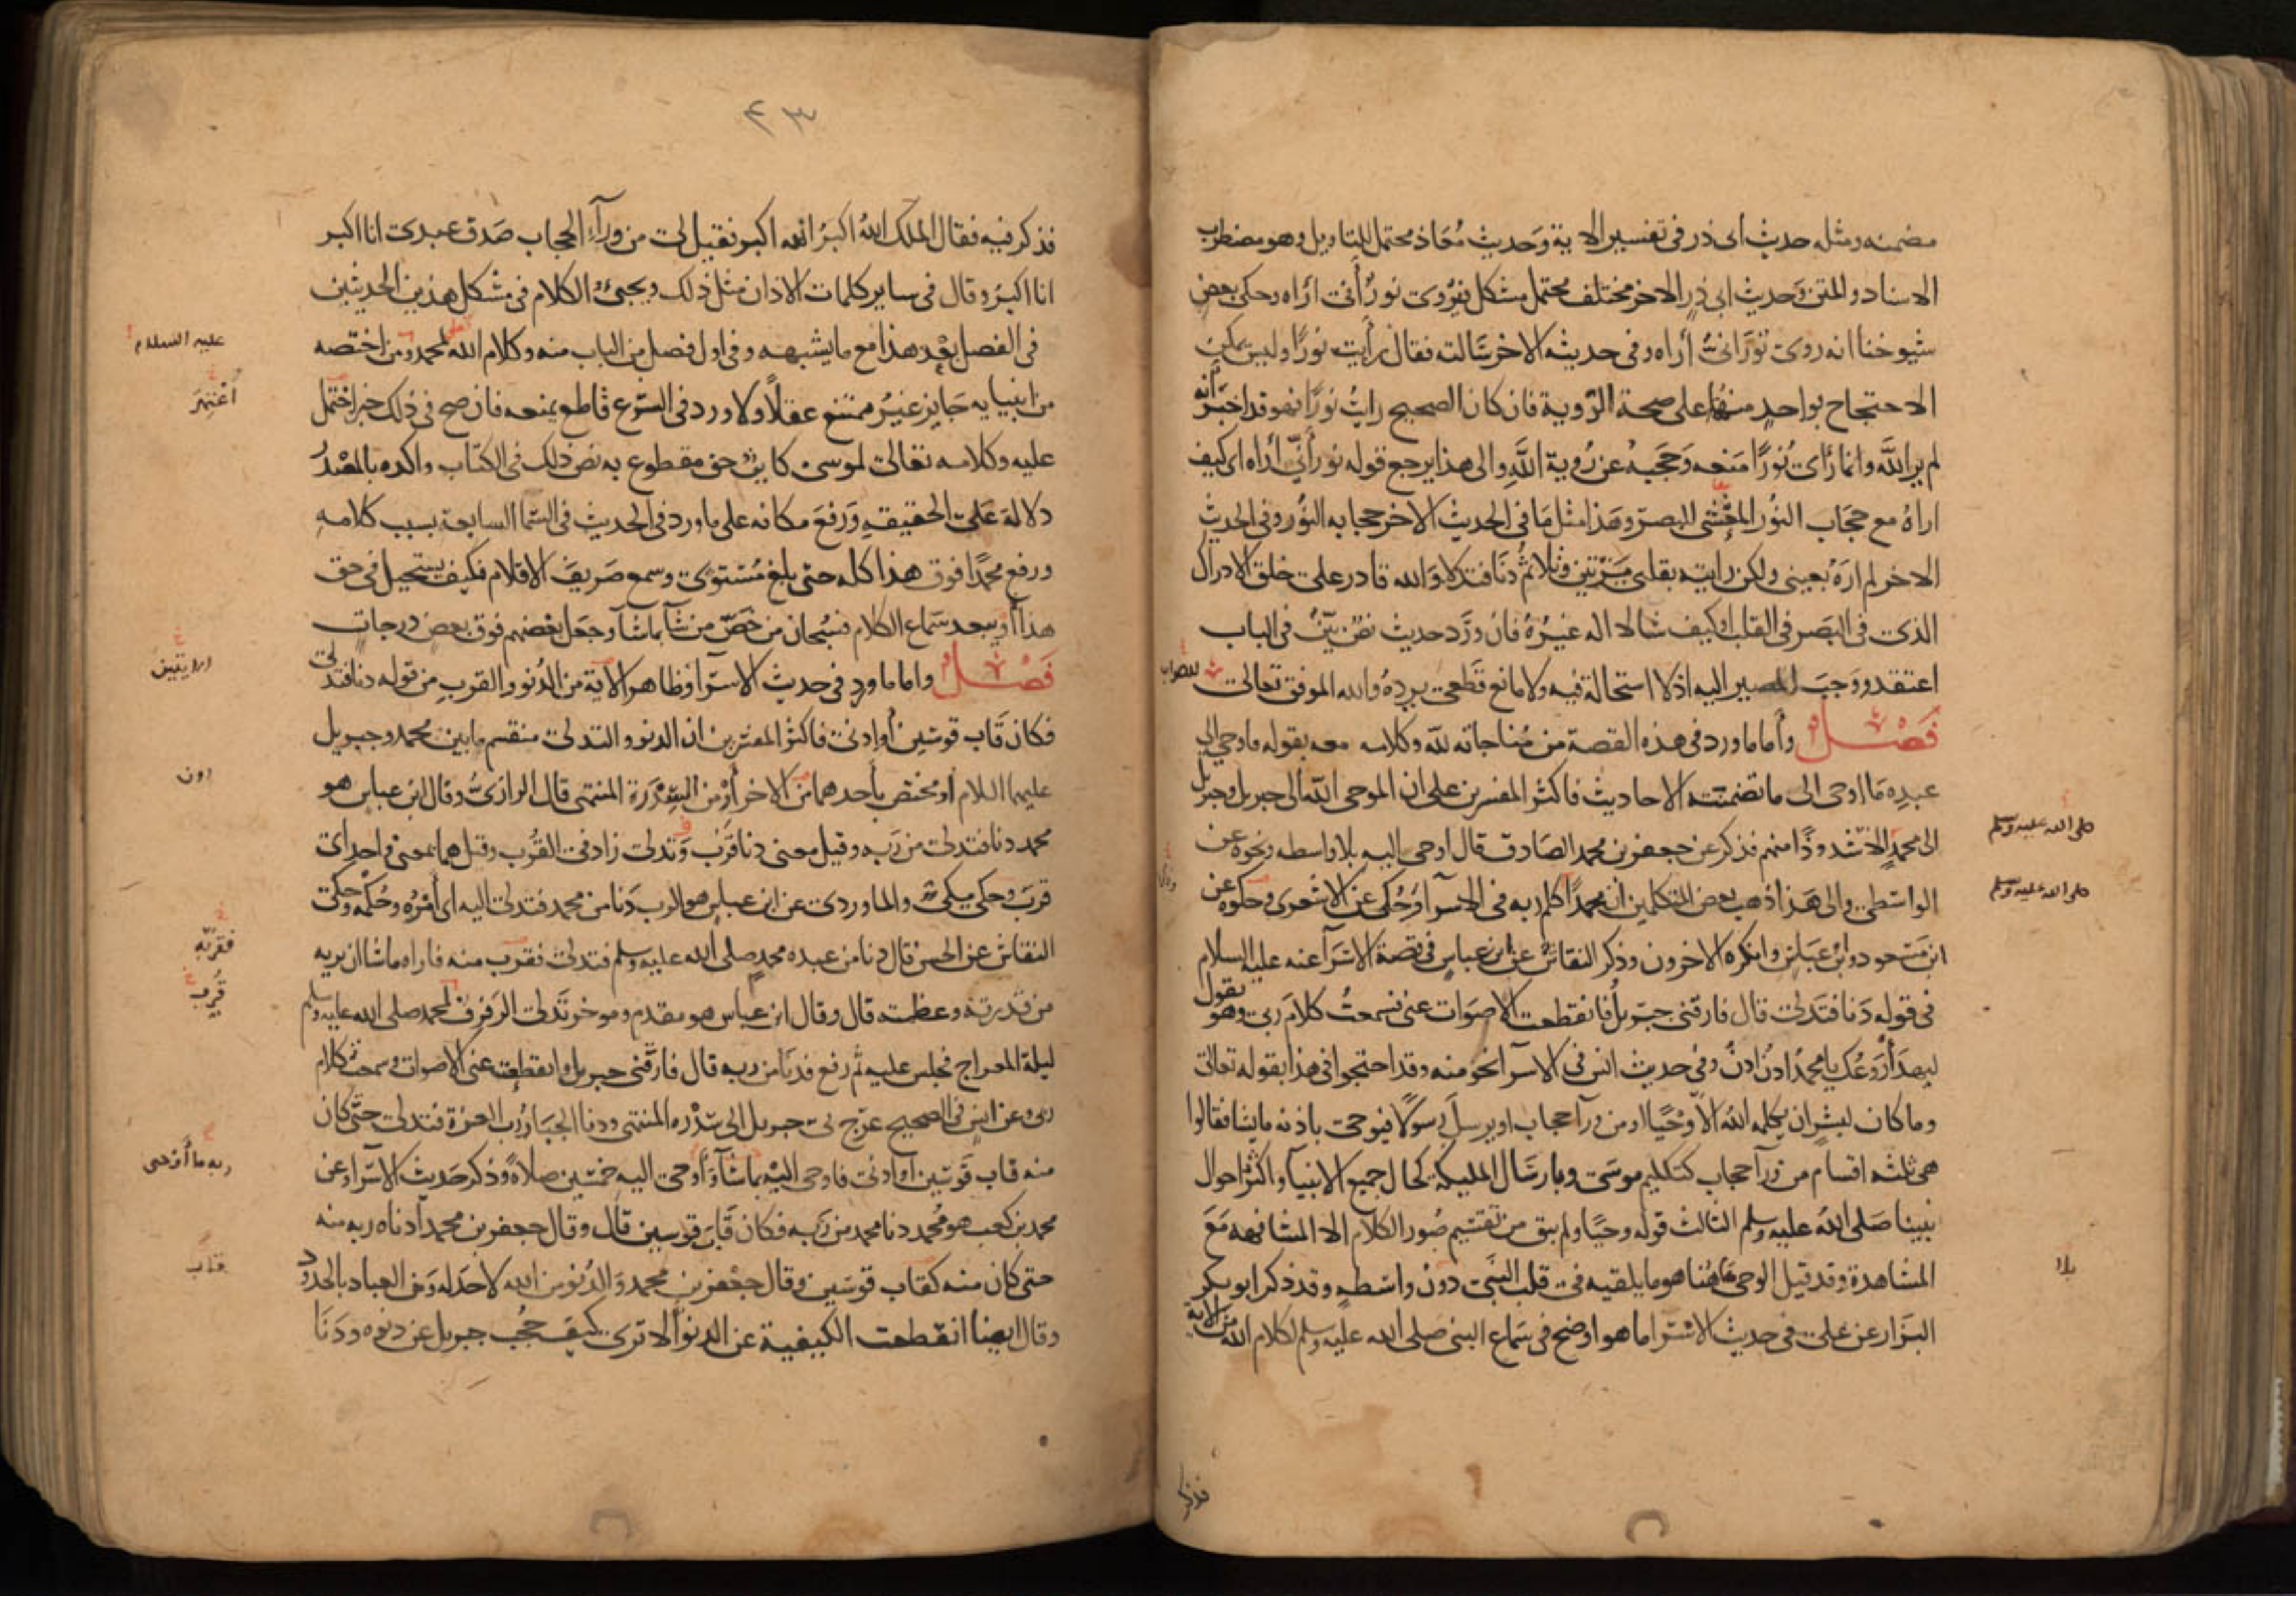 مضمنه ومثله حديث ابى ذر فى تفسير الاية وحديث معاذ محتمل للتاويل وهو مضطرب
الاسناد والمتن وحديث ابى ذر الاخر مختلف محتمل مشكل فيروى نور أنى اراه وحكى بعض
شيوخنا انه روى نورانى أراه وفى حديثه الاخر سالته فقال رأيت نورا وليس يمكن
الاحتجاج بواحد منهما على صحة الروية فان كان الصحيح رايت نورا فهو قد اخبر أنه
لم ير الله وانما رأى نورا منعه وحجبه عن روية الله والى هذا يرجع قوله نور أنى أراه اى كيف
اراه مع حجاب النور المغشى للبصر وهذا مثل ما فى الحديث الاخر حجابه النور وفى الحديث
الاخر لم اره بعينى ولكن رايته بقلبى مرتين وتلا ثم دنا فتدلا والله قادر على خلق الادراك
الذى فى البصر فى القلب او كيف شا لا اله غيره فان ورد حديث نص بين فى الباب
اعتقد ووجب المصير اليه اذ لا استحالة فيه ولا مانع قطعى يرده والله الموفق تعالى للصواب
فصل وأما ما ورد فى هذه القصة من مناجاته لله وكلامه معه بقوله فاوحى الى
عبده ما اوحى الى ما تضمنته الاحاديث فاكثر المفسرين على ان الموحى الله الى جبريل وجبريل
صلى الله عليه وسلم
الى محمد الا شذوذا منهم فذكر عن جعفر بن محمد الصادق قال اوحى اليه بلا واسطه ونحوه عن
صلى الله عليه وسلم
الواسطى والى هذا ذهب بعض المتكلمين ان محمدا كلم ربه فى الاسرا وحكى عن الاشعرى وحكوه عن
ابن مسعود وابن عباس وانكره الاخرون وذكر النقاش عن ابن عباس فى قصة الاسرآ عنه عليه السلام
فى قوله دنا فتدلى قال فارقنى جبريل فانقطعت الاصوات عنى فسمعت كلام ربى وهو يقول
ليهدأ روعك يا محمد ادن ادن وفى حديث انس فى الاسرا نحو منه وقد احتجوا فى هذا بقوله تعالى
وما كان لبشر ان يكلمه الله الا وحيا او من ورآ حجاب او يرسل رسولا فيوحى باذنه ما يشا فقالوا
هى ثلثه اقسام من ورآ حجاب كتكليم موسى وبارسال المليكة كحال جميع الانبيآ واكثر احوال
نبينا صلى الله عليه وسلم الثالث قوله وحيا ولم يبق من تقسيم صور الكلام الا المشافهه مع
المشاهدة وقد قيل الوحى هاهنا هو ما يلقيه فى قلب النبى دون واسطه وقد ذكر ابو بكر
بلا
البزار عن على فى حديث الاسرا ما هو اوضح فى سماع النبى صلى الله عليه وسلم لكلام الله من الاية
فذكر
٤٣
فذكر فيه فقال الملك الله اكبر الله اكبر فقيل لى من ورآء الحجاب صدق عبدى انا اكبر
انا اكبر وقال فى ساير كلمات الاذان مثل ذلك ويجىء الكلام فى مشكل هذين الحديثين
فى الفصل بعد هذا مع ما يشبهه وفى اول فصل من الباب منه وكلام الله لمحمد ومن اختصه
عليه السلام
من انبيايه جايز غير ممتنع عقلا ولا ورد فى الشرع قاطع يمنعه فان صح فى ذلك خبر احتمل
أعتمد
عليه وكلامه تعالى لموسى كاين حق مقطوع به نص ذلك فى الكتاب واكده بالمصدر
دلالة على الحقيقه ورفع مكانه على ما ورد فى الحديث فى السما السابعة بسبب كلامه
ورفع محمدا فوق هذا كله حتى بلغ مستوى وسمع صريف الاقلام فكيف يستحيل فى حق
هذا أو يبعد سماع الكلام فسبحان من خص من شآ بما شآ وجعل بعضهم فوق بعض درجات
فصل واما ما ورد فى حديث الاسرا وظاهر الاية من الدنو والقرب من قوله دنا فتدلى
فكان قاب قوسين أو ادنى فاكثر المفسرين ان الدنو والتدلى منقسم ما بين محمد وجبريل
عليهما السلام أو مختص باحدهما من الاخر أو من السدرة المنتهى قال الرازى وقال ابن عباس هو
محمد دنا فتدلى من ربه وقيل معنى دنا قرب وتدلى زاد فى القرب وقيل هما بمعنى واحد اى
قرب وحكى مكى والماوردى عن ابن عباس هو الرب دنا من محمد فتدلى اليه اى أمره وحكمه وحكى
النقاش عن الحسن قال دنا من عبده محمد صلى الله عليه وسلم فتدلى فقرب منه فاراه ما شا ان يريه
فقربه
من قدرته وعظمته قال وقال ابن عباس هو مقدم وموخر تدلى الرفرف لمحمد صلى الله عليه وسلم
قرب
ليلة المعراج فجلس عليه ثم رفع فدنا من ربه قال فارقنى جبريل وانقطعت عنى الاصوات وسمعت كلام
ربى وعن انس فى الصحيح عرج بى جبريل الى سدره المنتهى ودنا الجبار رب العزة فتدلى حتى كان
منه قاب قوسين أو ادنى فاوحى اليه بما شآ وأوحى اليه خمسين صلاة وذكر حديث الاسرا وعن
ربه ما أوحى
محمد بن كعب هو محمد دنا محمد من ربه فكان قاب قوسين قال وقال جعفر بن محمد أدناه ربه منه
حتى كان منه كقاب قوسين وقال جعفر بن محمد والدنو من الله لا حد له ومن العباد بالحدود
قاب
وقال ايضا انقطعت الكيفية عن الدنو ألا ترى كيف حجب جبريل عن دنوه ودنا